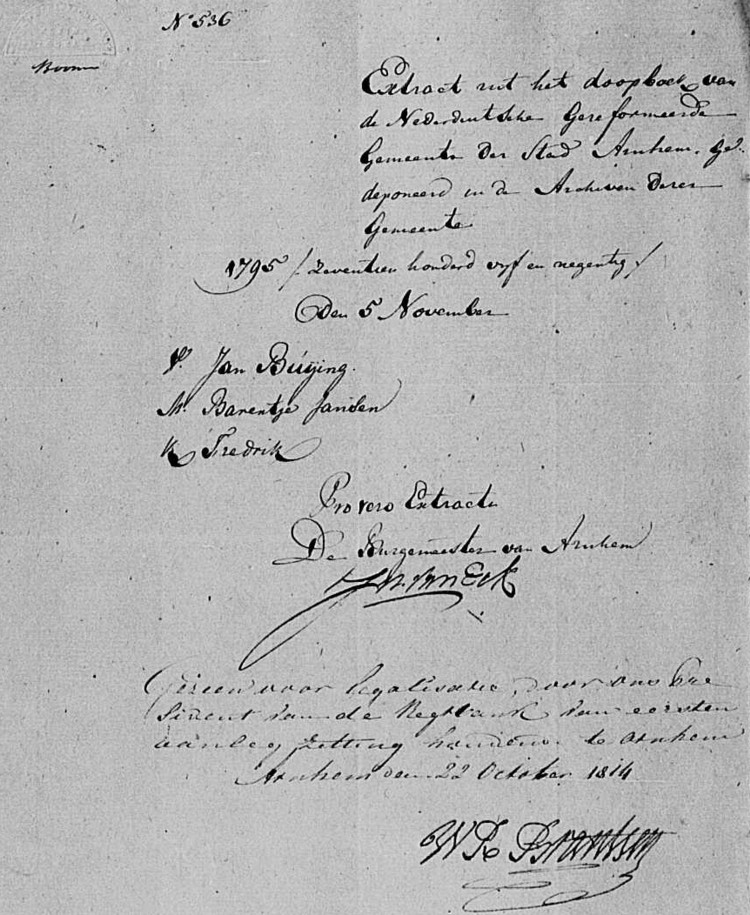 No 536
Extract uit het doopboek van
de Nederduitsche Gereformeerde
Gemeente der Stad Arnhem, ge-
deponeerd in de Archiven derer
Gemeente
1795 / zeventien honderd vyf en negentig /
Den 5 November
V. Jan Buÿing.
M. Barentje Jansen
K Fredrik
Pro vero Extracte
De Burgemeester van Arnhem
van Eck
Gezien voor legalisatie, door ons Pre
sident van de Regtbank van eersten
aanleg zitting houdende te Arnhem
Arnhem den 22 October 1814
W R Brantsen